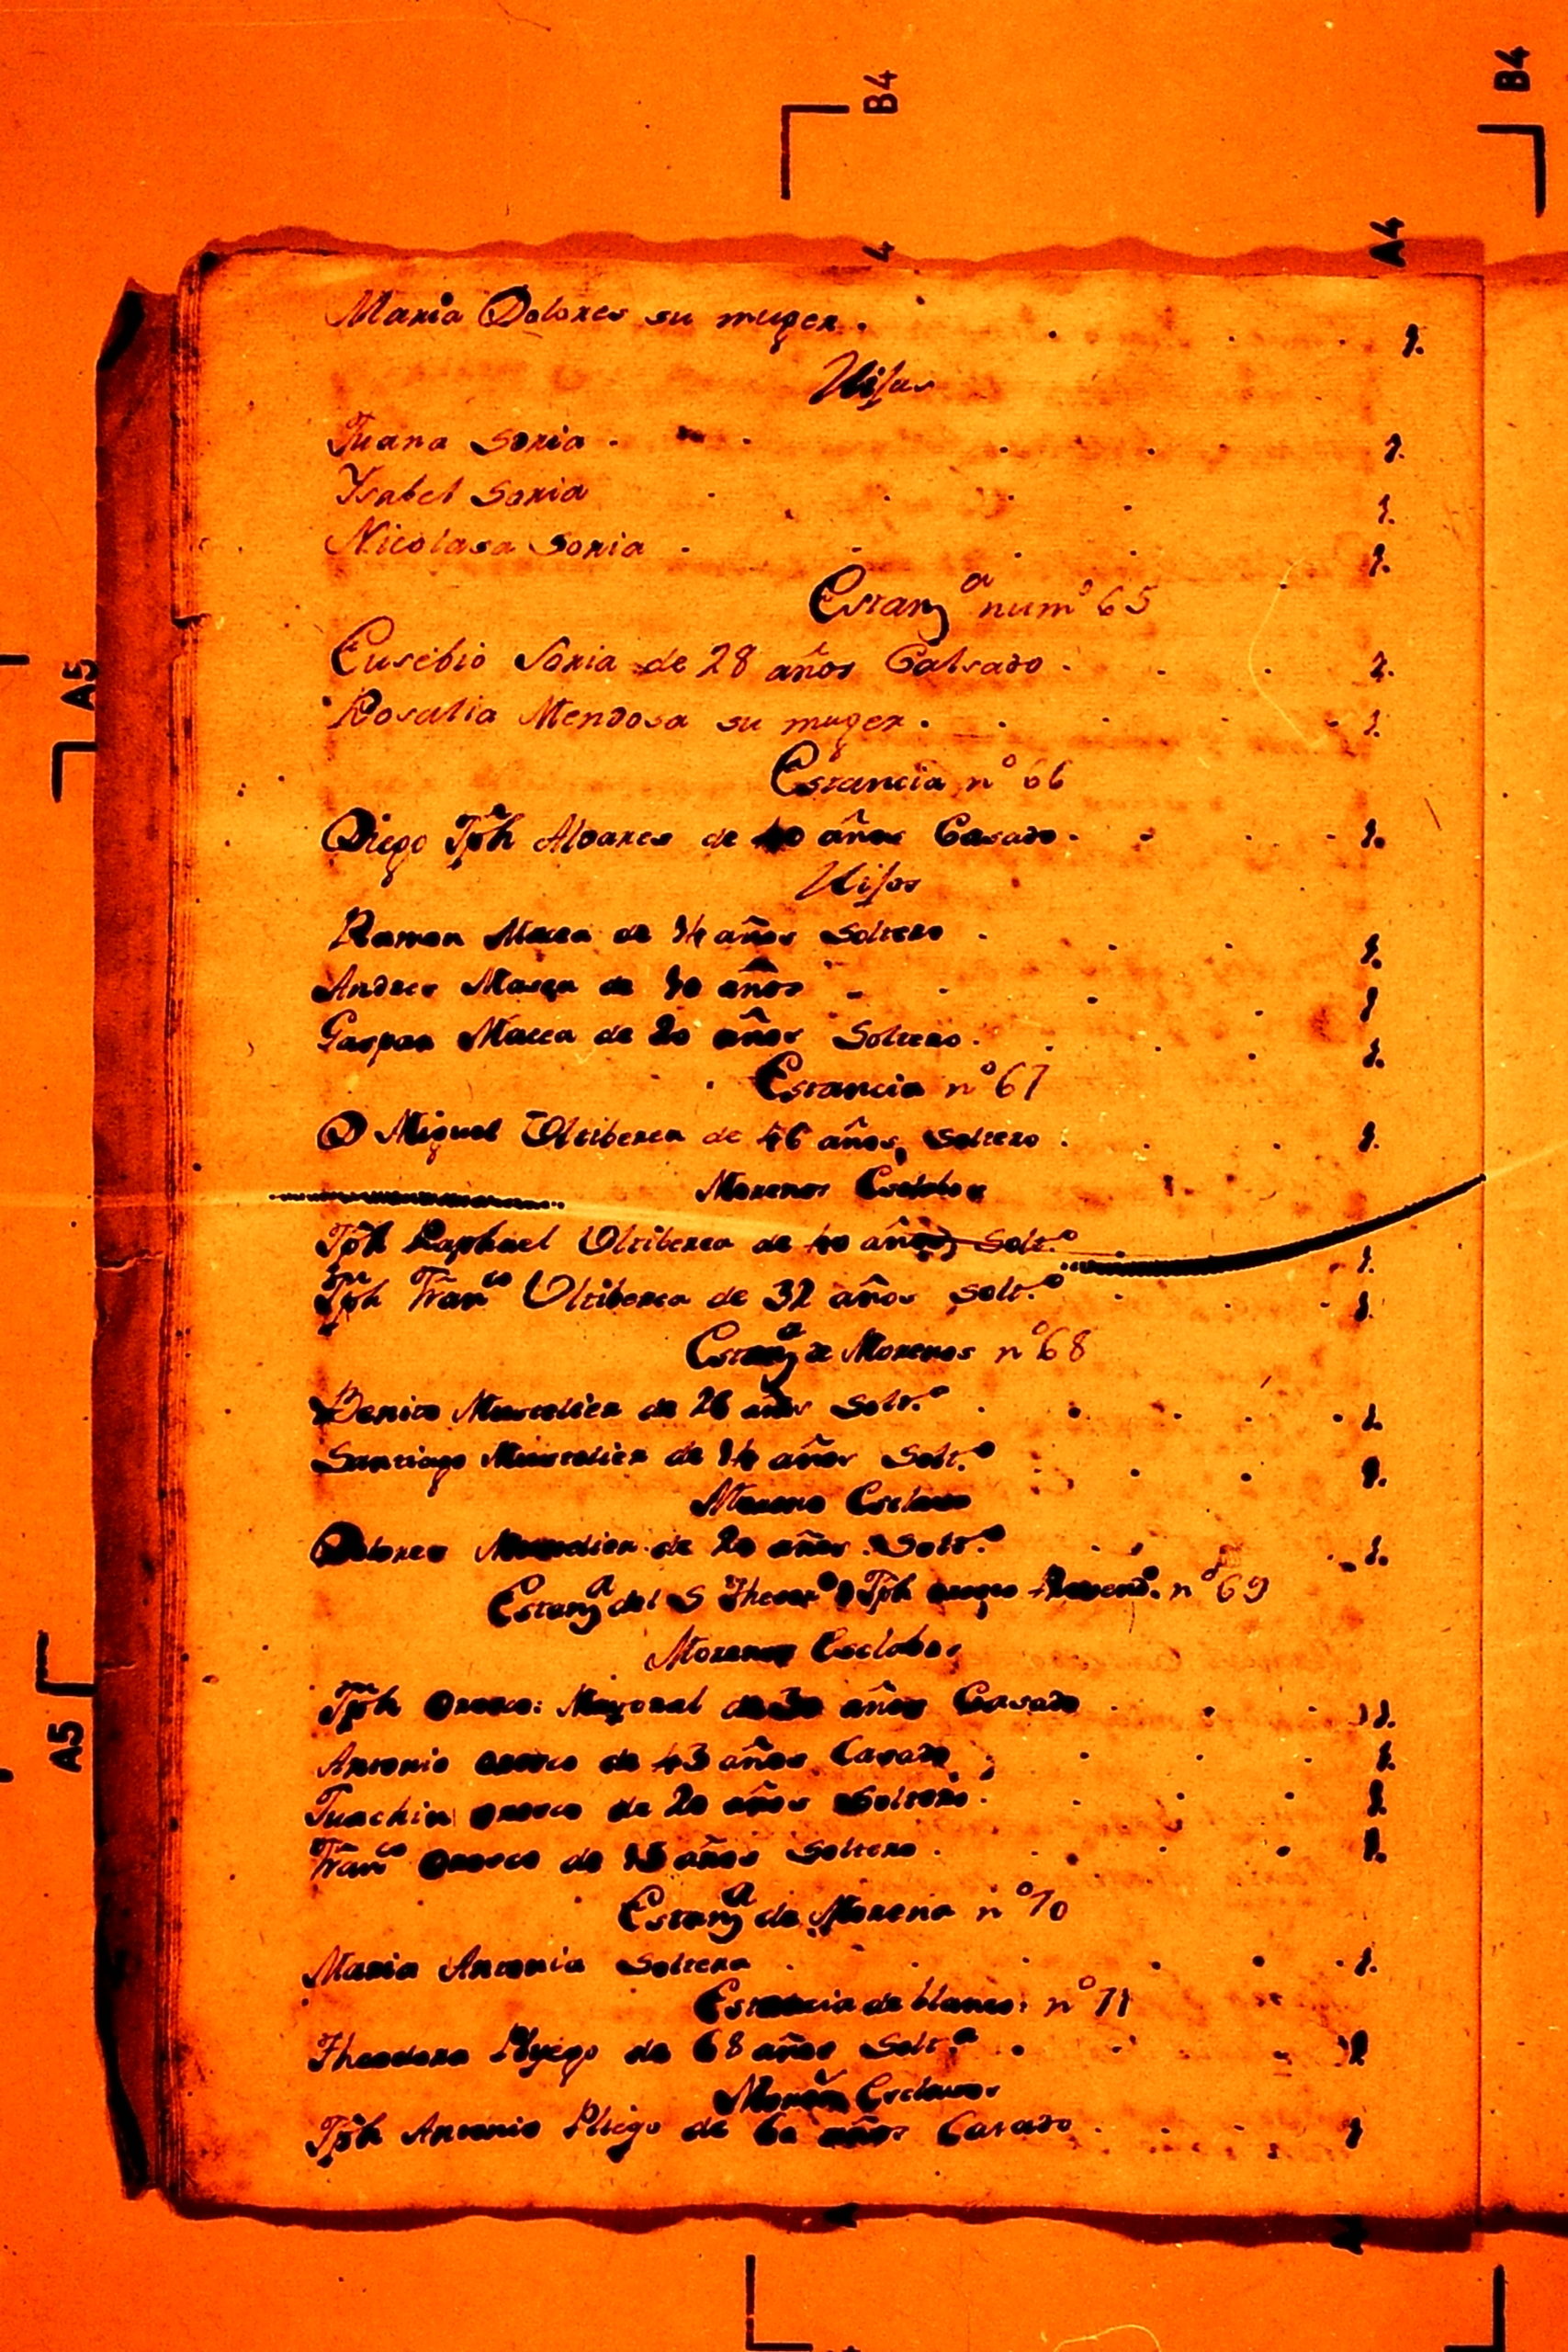 B4
B4
A4
4
Maria Dolores su muger. 1.
Hijas
Juana Soria 1.
Ysabel Soria 1.
Nicolasa Soria 1.
Estanª num° 65
Eusebio Soria de 28 años Calsado 1.
Rosalia Mendosa su muger. 1.
Estancia n° 66
Diego Jph Alvares de 40 años Casado 1.
Hijos
Ramon Macea de 14 años Soltero 1.
Andres Macea de 10 años 1
Gaspar Macea de 20 años Soltero. 1.
Estancia n° 67
D Miguel Ultiberea de 46 años Soltero 1.
Morenos Esclabos
Jph Raphael Ultiberea de 40 años Solt.° 1.
Jph Franco Ultiberea de 32 años Solt.° 1.
Estanª de Morenos n° 68
Benito de 26 años Solt.° 1.
Santiago de 14 años Solt.° 1.
Moreno Esclavo
Dolores de 20 años Solt.° 1.
Estanª del S Thesor° D Jph n° 69
Morenos Esclabos
Jph Orosco: Mayoral de 30 años Casado 1.
Antonio Orosco de 43 años Casado 1.
Juachin Orosco de 20 años Soltero 1.
Franco Orosco de 15 años Soltero 1.
Estanª de Morena n° 70
Maria Antonia Soltera 1.
Estancia de blancos n° 71
Theodora Pliego de 68 años Solt.ª 1
Esclavos
Jph Antonio Pliego de 60 años Casado 1
A5
A5